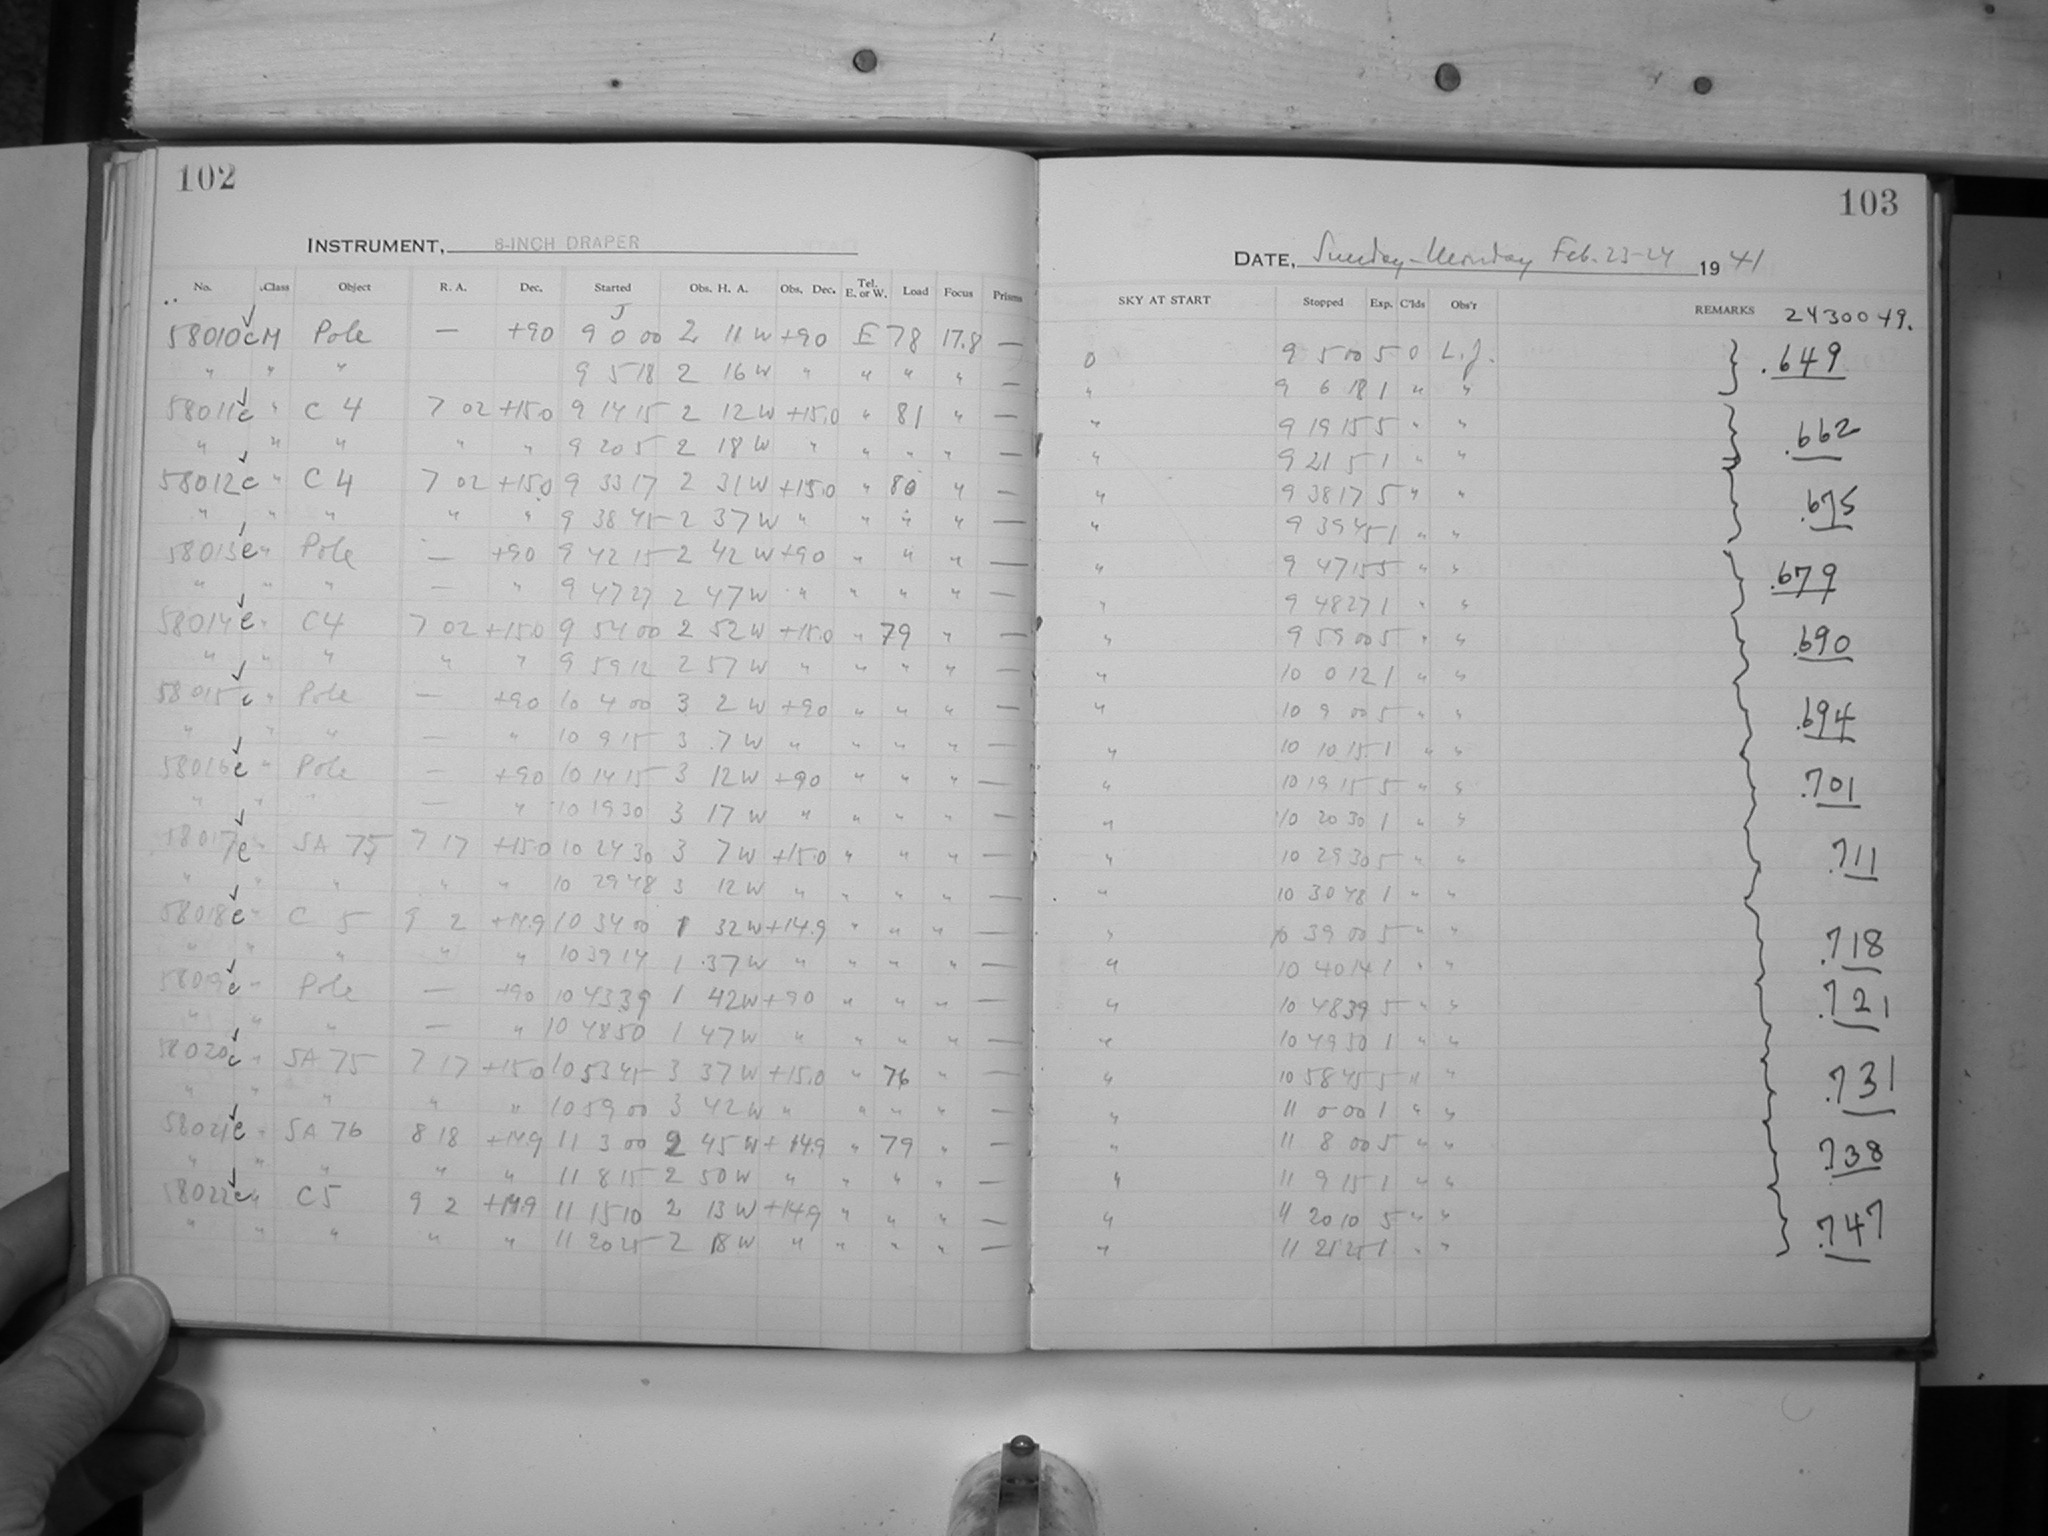 102
INSTRUMENT, 8-INCH DRAPER
No. Class Object R. A. Dec. Started Obs. H. A. Obs. Dec. Tel. E. or W. Load Focus Prisms
58010 c M Pole — +90 9 0 00 2 11 W +90 E 78 17.8 —
" " " 9 5 18 2 16 W " " " " —
58011 c " C 4 7 02 +15.0 9 14 15 2 12 W +15.0 " 81 " —
" " " " " 9 20 5 2 18 W " " " " —
58012 c " C 4 7 02 +15.0 9 33 17 2 31 W +15.0 " 80 " —
" " " " " 9 38 45 2 37 W " " " " —
58013 c " Pole — +90 9 42 15 2 42 W +90 " " " —
" " " — " 9 47 27 2 47 W " " " " —
58014 c " C 4 7 02 +15.0 9 54 00 2 52 W +15.0 " 79 " —
" " " " " 9 59 12 2 57 W " " " " —
58015 c " Pole — +90 10 4 00 3 2 W +90 " " " —
" " " — " 10 9 15 3 7 W " " " " —
58016 c " Pole — +90 10 14 15 3 12 W +90 " " " —
" " " — " 10 19 30 3 17 W " " " " —
58017 c " SA 75 7 17 +15.0 10 24 30 3 7 W +15.0 " " " —
" " " " " 10 29 48 3 12 W " " " " —
58018 c " C 5 9 2 +14.9 10 34 00 1 32 W +14.9 " " " —
" " " " " 10 39 14 1 37 W " " " " —
58019 c " Pole — +90 10 43 39 1 42 W +90 " " " —
" " " — " 10 48 50 1 47 W " " " " —
58020 c " SA 75 7 17 +15.0 10 53 45 3 37 W +15.0 " 76 " —
" " " " " 10 59 00 3 42 W " " " " —
58021 c " SA 76 8 18 +14.9 11 3 00 2 45 W +14.9 " 79 " —
" " " " " 11 8 15 2 50 W " " " " —
58022 c " C 5 9 2 +14.9 11 15 10 2 13 W +14.9 " " " —
" " " " " 11 20 25 2 18 W " " " " —
103
DATE, Sunday-Monday Feb. 23-24 1941
SKY AT START Stopped Exp. C'lds Obs'r REMARKS 2430049.
0 9 5 00 5 0 L.J. .649
" 9 6 18 1 " "
" 9 19 15 5 " " .662
" 9 21 5 1 " "
" 9 38 17 5 " " .675
" 9 39 45 1 " "
" 9 47 15 5 " " .679
" 9 48 27 1 " "
" 9 59 00 5 " " .690
" 10 0 12 1 " "
" 10 9 00 5 " " .694
" 10 10 15 1 " "
" 10 19 15 5 " " .701
" 10 20 30 1 " "
" 10 29 30 5 " " .711
" 10 30 48 1 " "
" 10 39 00 5 " " .718
" 10 40 14 1 " "
" 10 48 39 5 " " .721
" 10 49 50 1 " "
" 10 58 45 5 " " .731
" 11 0 00 1 " "
" 11 8 00 5 " " .738
" 11 9 15 1 " "
" 11 20 10 5 " " .747
" 11 21 25 1 " "